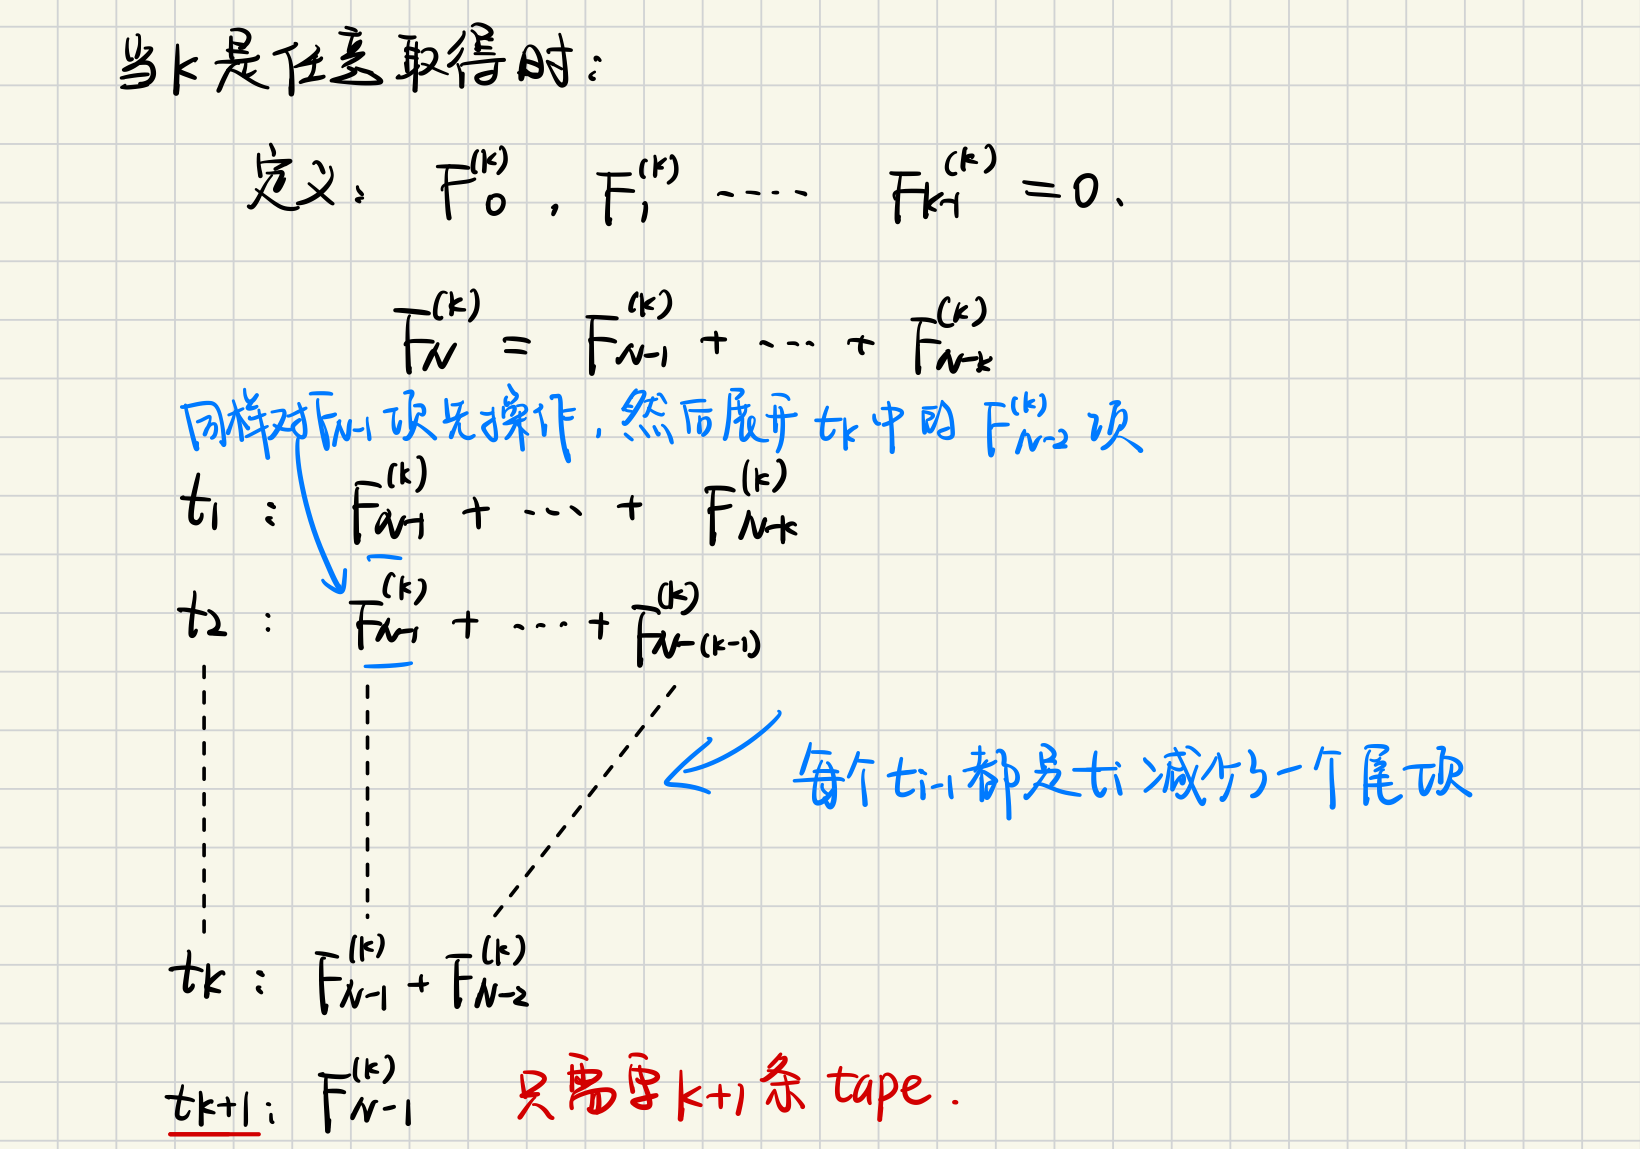 当k是任意取得时：
定义： F_0^{(k)} , F_1^{(k)} ---- F_{k-1}^{(k)} = 0 .
F_N^{(k)} = F_{N-1}^{(k)} + ---- + F_{N-k}^{(k)}
同样对F_{N-1}项先操作，然后展开 t_k 中的 F_{N-2}^{(k)} 项
t_1 ： F_{N-1}^{(k)} + ---- + F_{N-k}^{(k)}
t_2 ： F_{N-1}^{(k)} + ---- + F_{N-(k-1)}^{(k)}
每个 t_{i-1} 都是 t_i 减少一个尾项
t_k ： F_{N-1}^{(k)} + F_{N-2}^{(k)}
t_{k+1} ： F_{N-1}^{(k)} 只需要 k+1 条 tape .